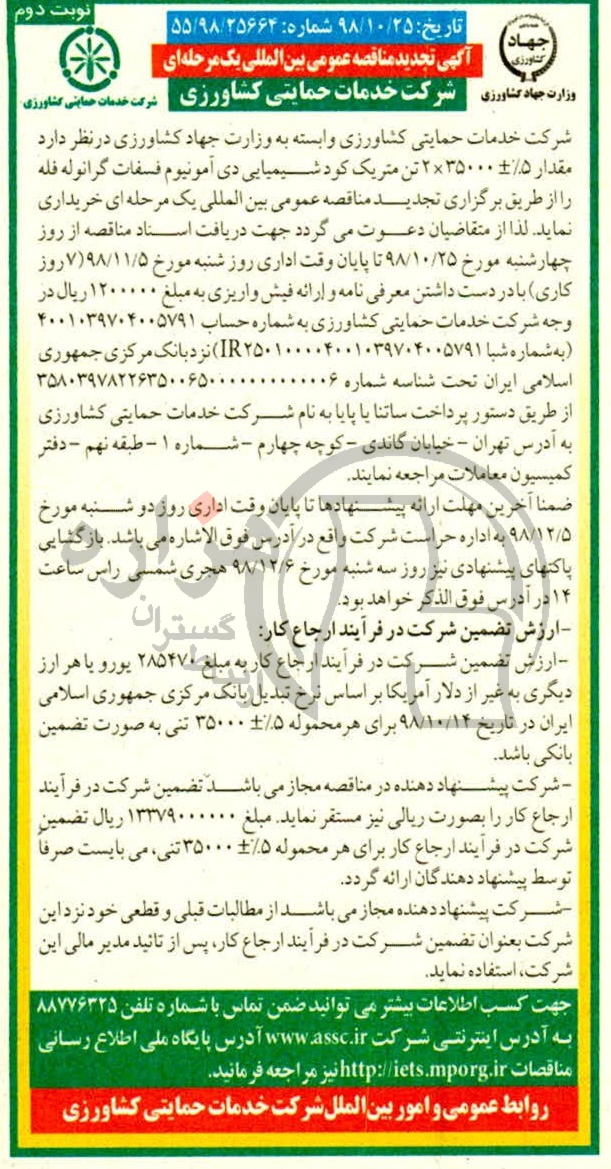 نوبت دوم
تاریخ: ۹۸/۱۰/۲۵ شماره: ۵۵/۹۸/۲۵۶۶۴
آگهی تجدید مناقصه عمومی بین المللی یک مرحله‌ای
شرکت خدمات حمایتی کشاورزی
جهاد
کشاورزی
وزارت جهاد کشاورزی
شرکت خدمات حمایتی کشاورزی
شرکت خدمات حمایتی کشاورزی وابسته به وزارت جهاد کشاورزی درنظر دارد
مقدار ۵٪± ۳۵۰۰۰×۲ تن متریک کود شیمیایی دی آمونیوم فسفات گرانوله فله
را از طریق برگزاری تجدید مناقصه عمومی بین المللی یک مرحله ای خریداری
نماید. لذا از متقاضیان دعوت می گردد جهت دریافت اسناد مناقصه از روز
چهارشنبه مورخ ۹۸/۱۰/۲۵ تا پایان وقت اداری روز شنبه مورخ ۹۸/۱۱/۵ (۷ روز
کاری) با در دست داشتن معرفی نامه و ارائه فیش واریزی به مبلغ ۱۲۰۰۰۰۰ ریال در
وجه شرکت خدمات حمایتی کشاورزی به شماره حساب ۴۰۰۱۰۳۹۷۰۴۰۰۵۷۹۱
(به شماره شبا IR۲۵۰۱۰۰۰۰۴۰۰۱۰۳۹۷۰۴۰۰۵۷۹۱) نزد بانک مرکزی جمهوری
اسلامی ایران تحت شناسه شماره ۳۵۸۰۳۹۷۸۲۲۶۳۵۰۰۶۵۰۰۰۰۰۰۰۰۰۰۰۰۶
از طریق دستور پرداخت ساتنا یا پایا به نام شرکت خدمات حمایتی کشاورزی
به آدرس تهران -خیابان گاندی -کوچه چهارم -شماره ۱- طبقه نهم -دفتر
کمیسیون معاملات مراجعه نمایند.
ضمنا آخرین مهلت ارائه پیشنهادها تا پایان وقت اداری روز دو شنبه مورخ
۹۸/۱۲/۵ به اداره حراست شرکت واقع در آدرس فوق الاشاره می باشد. بازگشایی
پاکتهای پیشنهادی نیز روز سه شنبه مورخ ۹۸/۱۲/۶ هجری شمسی راس ساعت
۱۴ در آدرس فوق الذکر خواهد بود.
-ارزش تضمین شرکت در فرآیند ارجاع کار:
-ارزش تضمین شرکت در فرآیند ارجاع کار به مبلغ ۲۸۵۴۷۰ یورو یا هر ارز
دیگری به غیر از دلار آمریکا بر اساس نرخ تبدیل بانک مرکزی جمهوری اسلامی
ایران در تاریخ ۹۸/۱۰/۱۴ برای هر محموله ۵٪± ۳۵۰۰۰ تنی به صورت تضمین
بانکی باشد.
-شرکت پیشنهاد دهنده در مناقصه مجاز می باشد تضمین شرکت در فرآیند
ارجاع کار را بصورت ریالی نیز مستقر نماید. مبلغ ۱۳۳۷۹۰۰۰۰۰۰ ریال تضمین
شرکت در فرآیند ارجاع کار برای هر محموله ۵٪± ۳۵۰۰۰ تنی، می بایست صرفاً
توسط پیشنهاد دهندگان ارائه گردد.
-شرکت پیشنهاد دهنده مجاز می باشد از مطالبات قبلی و قطعی خود نزد این
شرکت بعنوان تضمین شرکت در فرآیند ارجاع کار، پس از تائید مدیر مالی این
شرکت، استفاده نماید.
جهت کسب اطلاعات بیشتر می توانید ضمن تماس با شماره تلفن ۸۸۷۷۶۳۲۵
به آدرس اینترنتی شرکت www.assc.ir آدرس پایگاه ملی اطلاع رسانی
مناقصات http://iets.mporg.ir نیز مراجعه فرمائید.
روابط عمومی و امور بین الملل شرکت خدمات حمایتی کشاورزی
هزاره
گستران